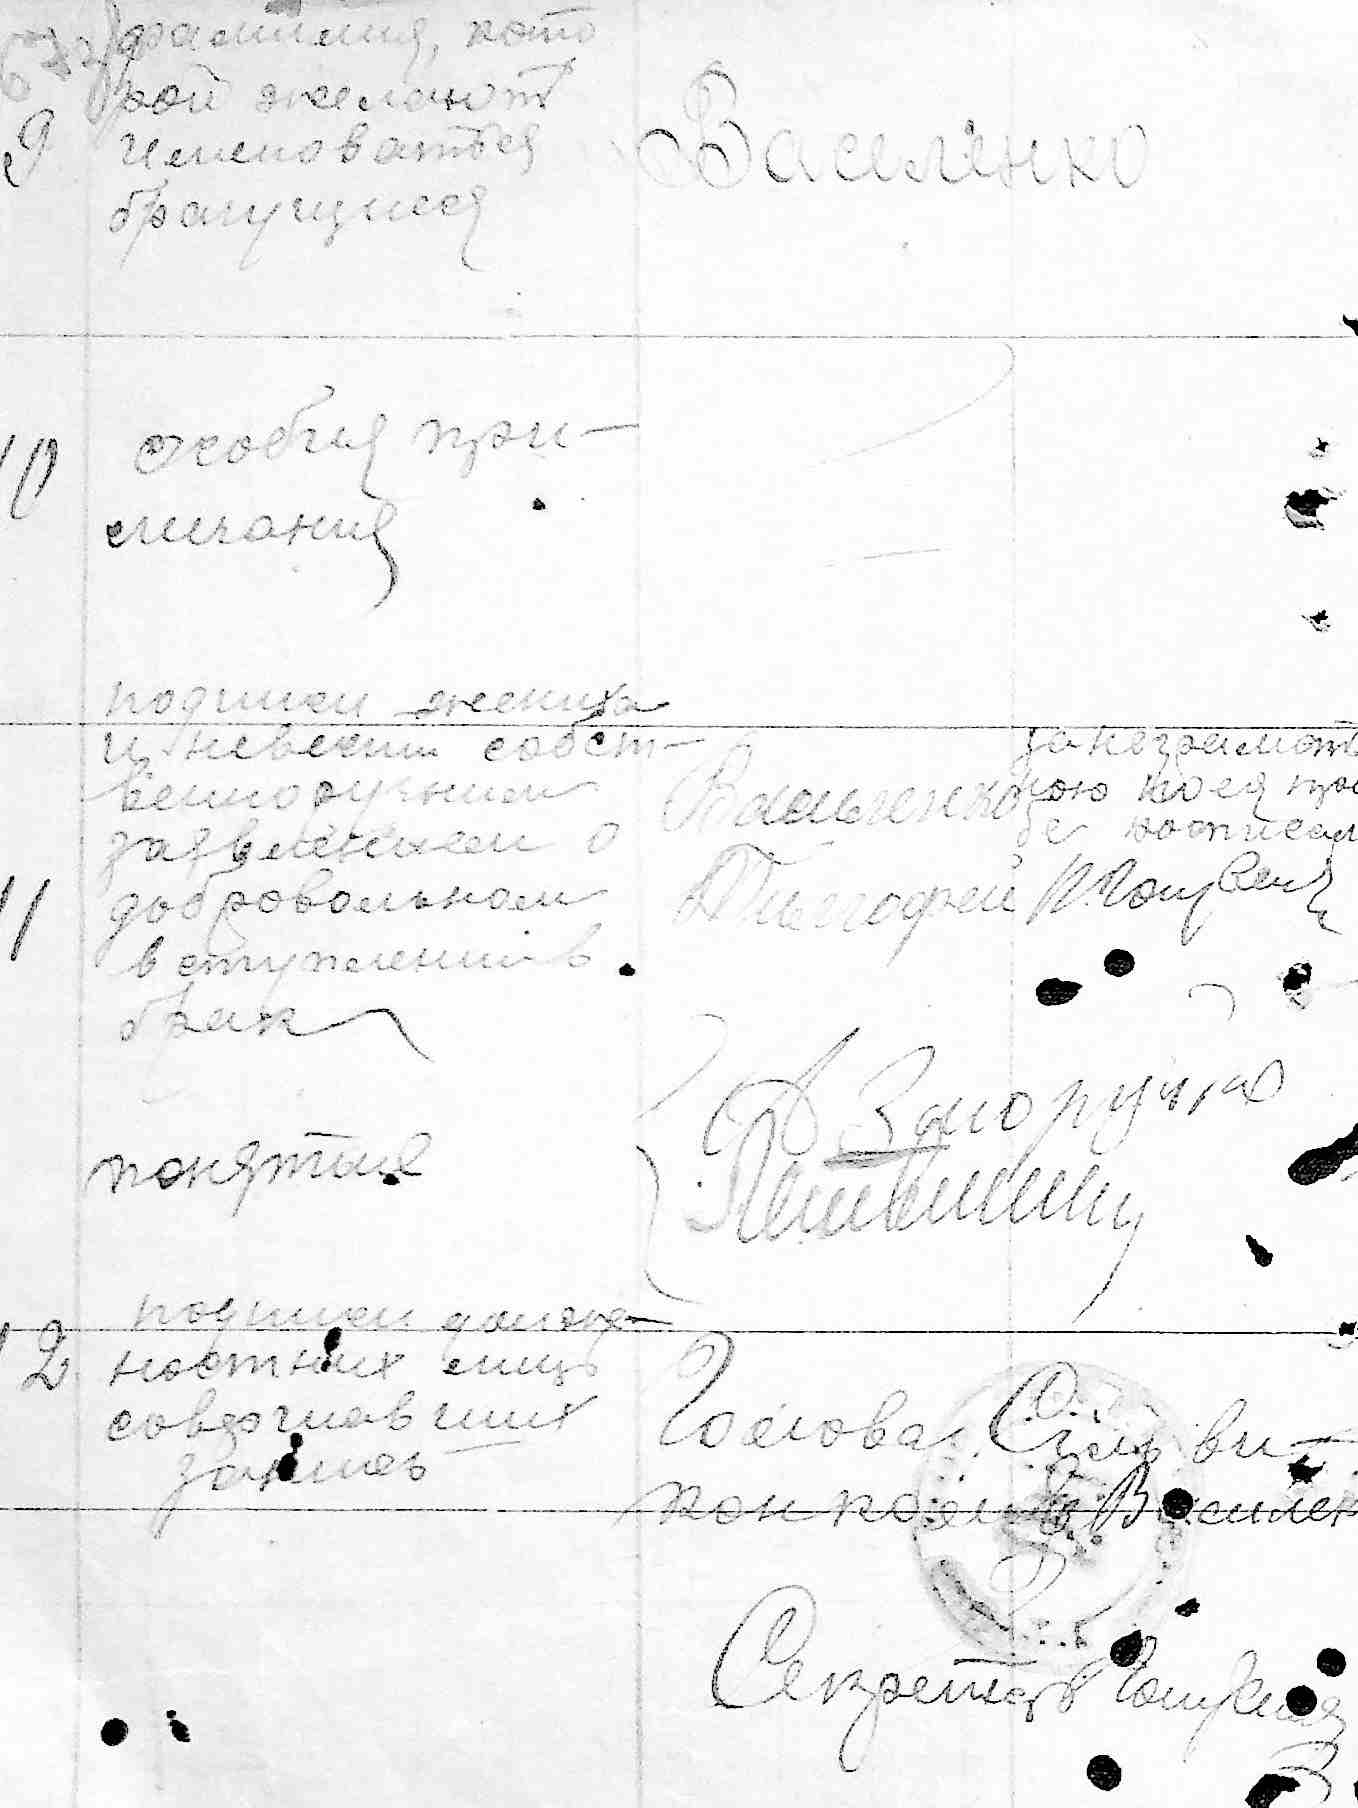 9
фамилия, кото
рой желают
именоваться
брачущиеся
Василенко
10
особыя при-
мичания
11
подписи жениха
и невести собст-
венноручним
заявлением о
добровольном
вступлении в
брак
Василенко
Тимофей
за неграмот
ною по ея про
бе
понятие
12
подписи долж-
ностних лиц
совершавших
запись
Голова Сильви-
конкома Василен
Секретарь